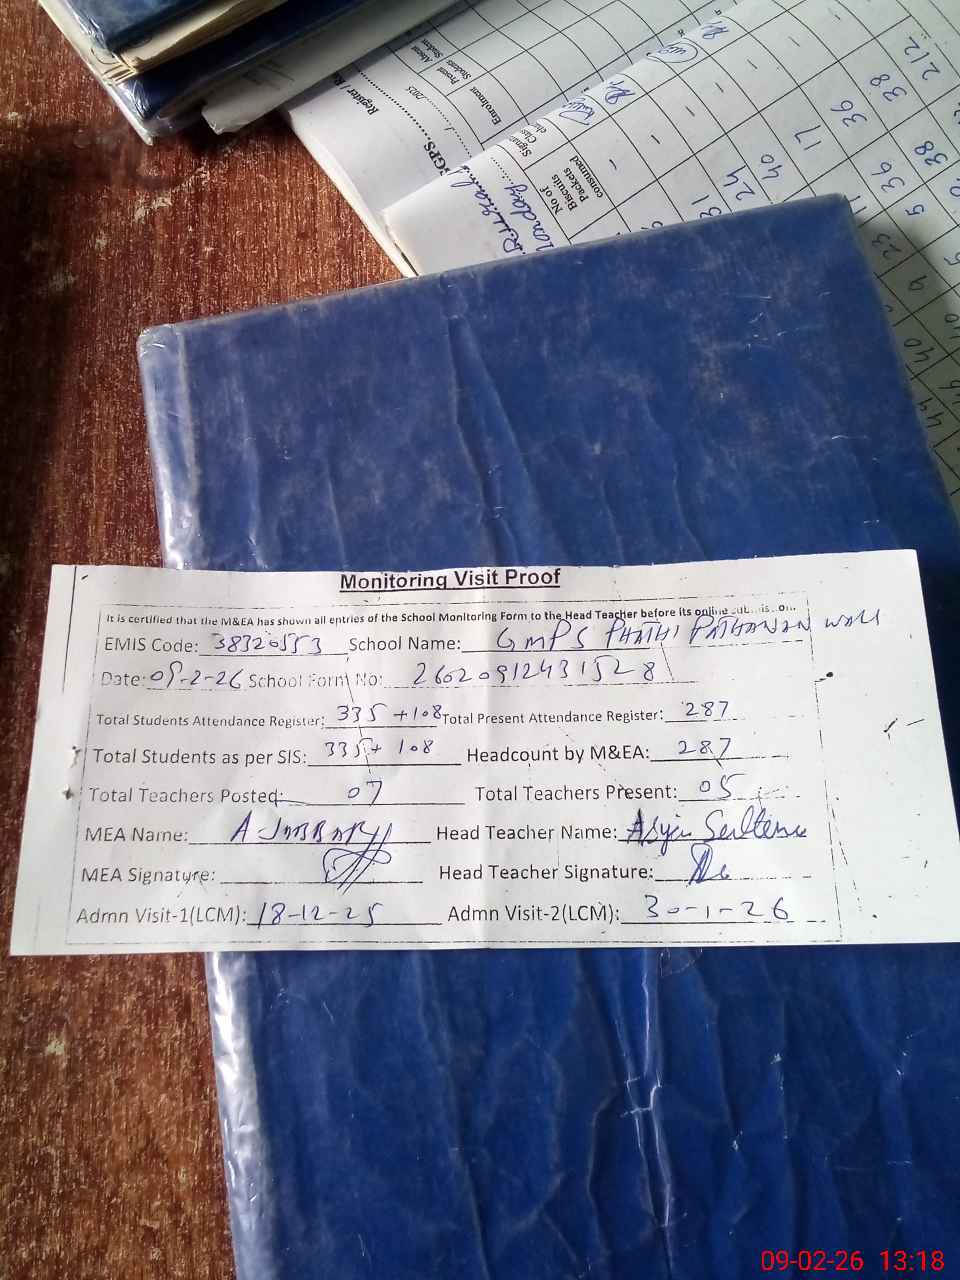 Register / Re
GPS
/2025
Enrolment
Present Students
Absent Students
No of Biscuits Packets consumed
31 24 40 17 36 38 212
Monitoring Visit Proof
It is certified that the M&EA has shown all entries of the School Monitoring Form to the Head Teacher before its online submission.
EMIS Code: 38320553 School Name: GMPS PHATHI PATHANAN WALI
Date: 09-2-26 School Form No: 26020912431528
Total Students Attendance Register: 335+108 Total Present Attendance Register: 287
Total Students as per SIS: 335+108 Headcount by M&EA: 287
Total Teachers Posted: 07 Total Teachers Present: 05
MEA Name: A JABBAR Head Teacher Name:
MEA Signature: Head Teacher Signature:
Admn Visit-1(LCM): 18-12-25 Admn Visit-2(LCM): 30-1-26
09-02-26 13:18